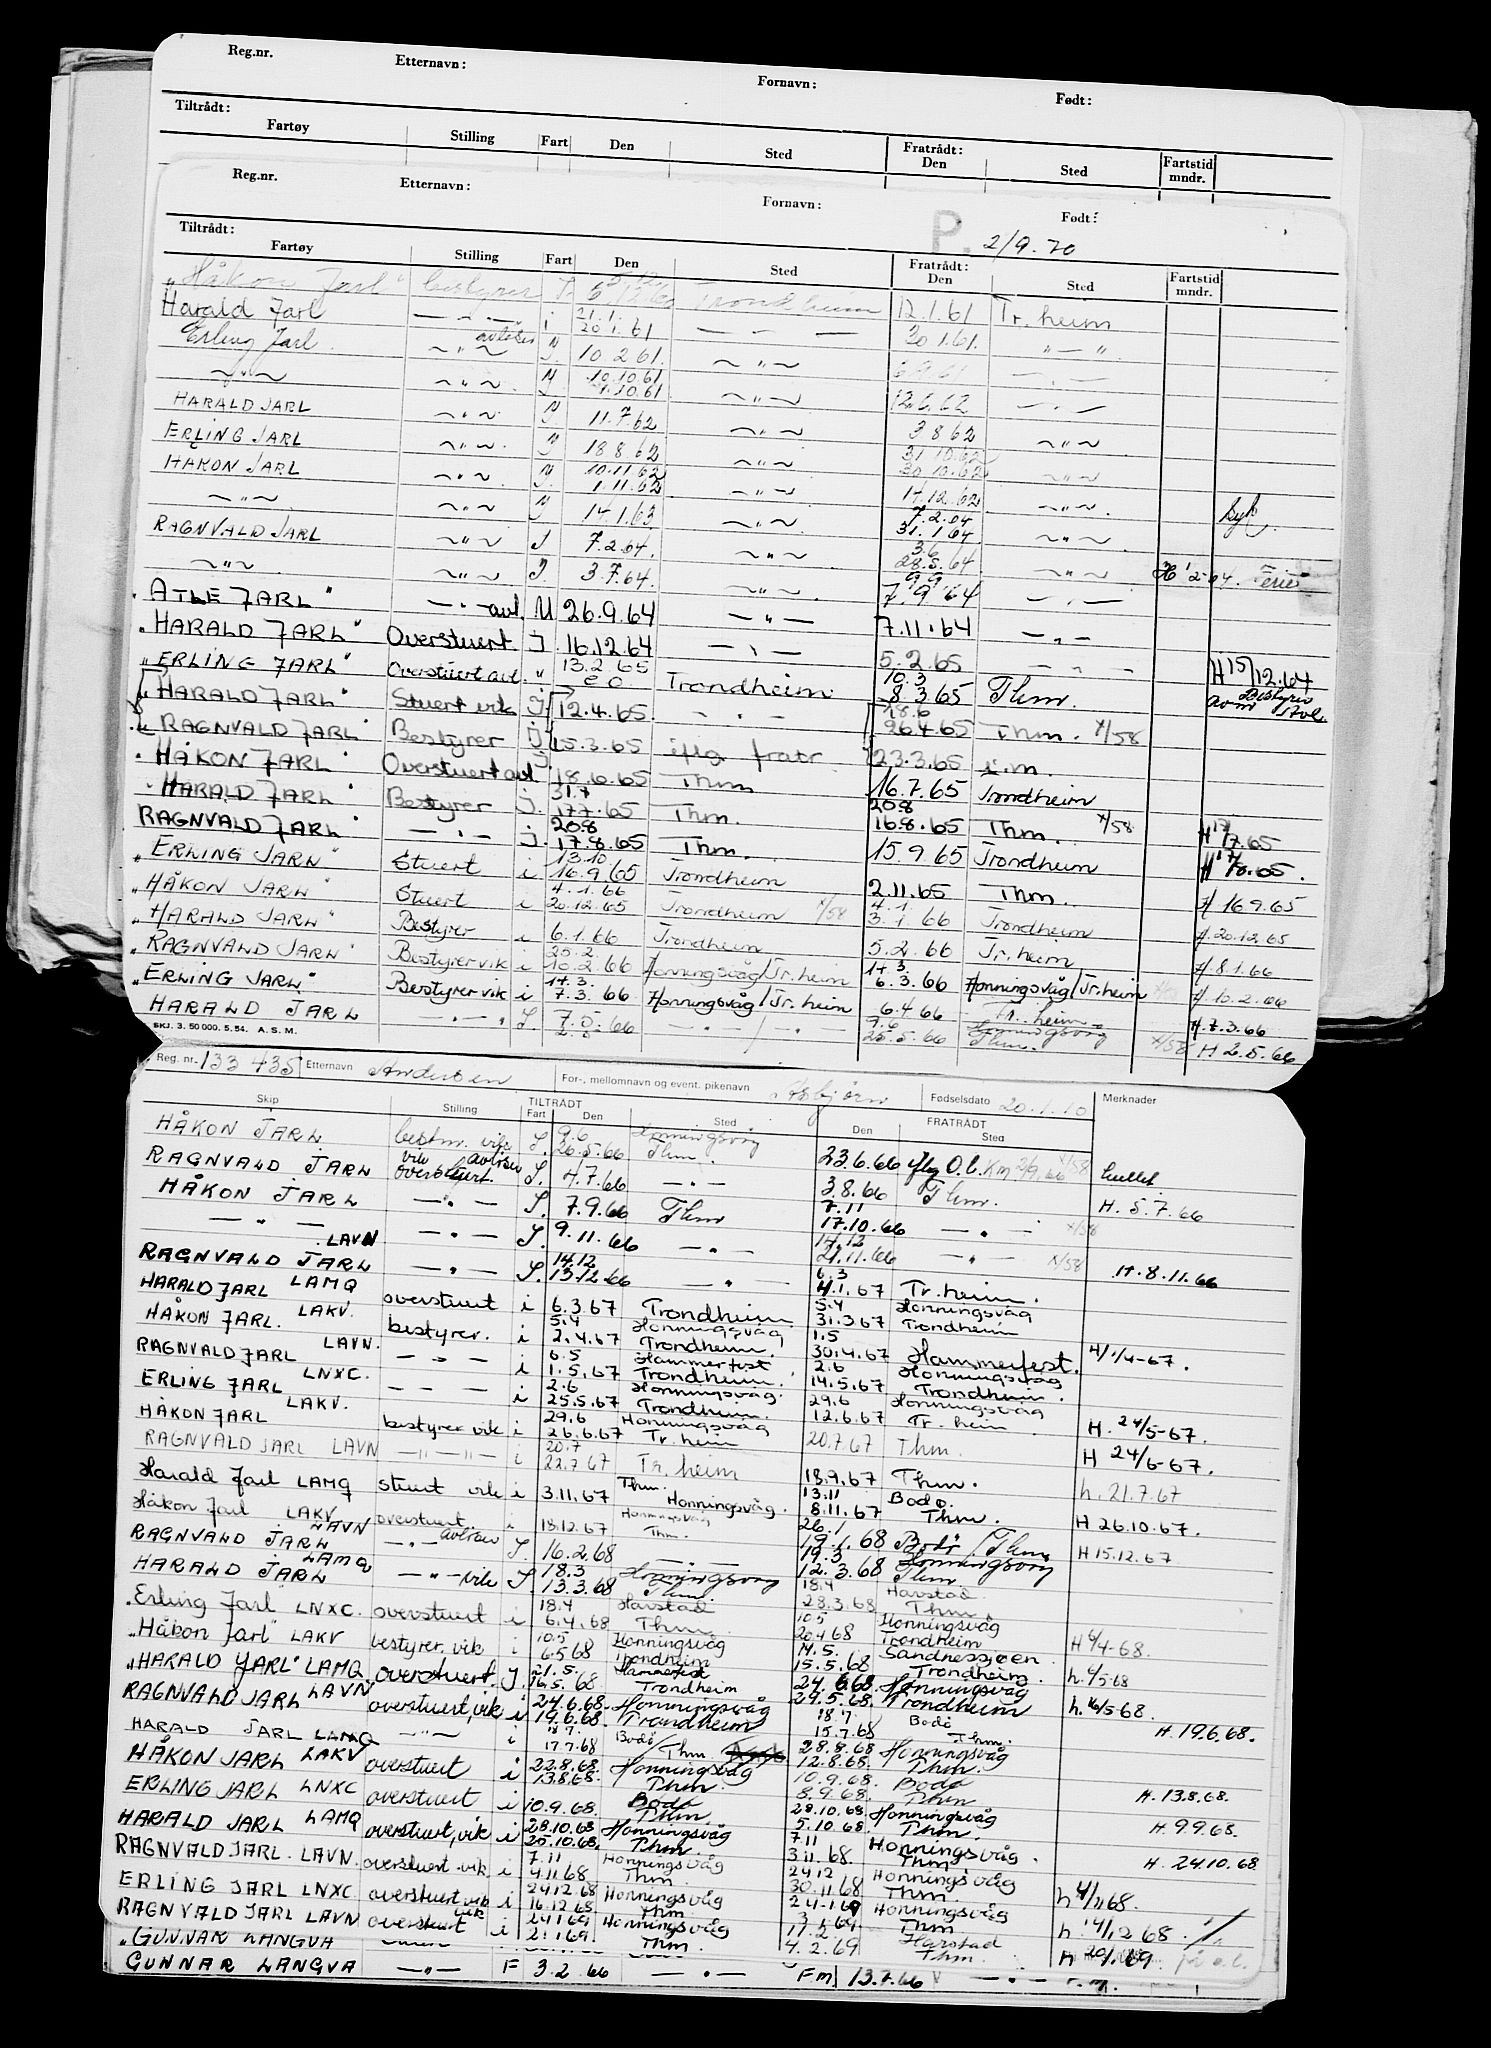 Reg.nr. Etternavn: Fornavn: Født:
Tiltrådt: Fratrådt:
Fartøy Stilling Fart Den Sted Den Sted Fartstid mndr.
Reg.nr. Etternavn: Fornavn: Født:
P. 2/9.70
Tiltrådt: Fratrådt:
Fartøy Stilling Fart Den Sted Den Sted Fartstid mndr.
"Håkon Jarl" bestyrer Trondheim 12.1.61 Tr.heim
Harald Jarl — " — i 21.1. 20.1.61 — " — 30.1.61. " — "
Erling Jarl ~ " ~ avløser 10.2.61. ~ " ~
~ " ~ ~ " ~ 10.10.61 ~ " ~ 12.6.62
HARALD JARL ~ " ~ 11.7.62 ~ " ~ 3.8.62 ~ " ~
ERLING JARL ~ " ~ 18.8.62 ~ " ~ 31.10.62 30.10.62 ~ " ~
HÅKON JARL ~ " ~ 10.11.62 1.11.62 ~ " ~ 14.12.62 ~ " ~
~ " ~ ~ " ~ 14.1.63 ~ " ~ 7.2.64 31.1.64 ~ " ~ Syk.
RAGNVALD JARL ~ " ~ J 7.2.64. ~ " ~ 3.6 28.5.64 ~ " ~ Ferie
~ " ~ ~ " ~ J. 3.7.64. ~ " ~ 9.9 7.9.64 — " —
"ATLE JARL" — " — avl. U 26.9.64 — " — 7.11.64 — " —
"HARALD JARL" Overstuert J. 16.12.64 — " — 5.2.65 — " — H 15/12.64
"ERLING JARL" Overstuert avl. " 13.2.65 Trondheim 10.3 8.3.65 Thm.
"HARALD JARL" Stuert vik J. 12.4.65 — " — 18.6 26.4.65 Thm. X/58
"RAGNVALD JARL" Bestyrer J. 15.3.65 iflg. fratr. 23.3.65 i.m.
"HÅKON JARL" Overstuert avl J. 18.6.65 Thm 16.7.65 Trondheim
"HARALD JARL" Bestyrer J. 31.7 17.7.65 Thm. 20.8 16.8.65 Thm. X/58 H 17/7.65
RAGNVALD JARL" — " — J. 20.8 17.8.65 Thm. 15.9.65 Trondheim H 17/8.65.
"ERLING JARL" Stuert i 13.10 16.9.65 Trondheim 2.11.65 Thm. H 16.9.65
"HÅKON JARL" Stuert i 4.1.66 20.12.65 Trondheim X/58 4.1. 3.1.66 Trondheim H. 20.12.65
"HARALD JARL" Bestyrer i 6.1.66 Trondheim 5.2.66 Tr.heim H. 8.1.66
"RAGNVALD JARL" Bestyrer vik i 25.2. 10.2.66 Honningsvåg/Tr.heim 17.3. 6.3.66 Honningsvåg/Tr.heim H. 10.2.66
"ERLING JARL" Bestyrer vik i 17.3. 7.3.66 Honningsvåg/Tr.heim 6.4.66 Tr.heim. H. 7.3.66
HARALD JARL — " — " J. 7.5.66 — " — / — " — 9.6 25.5.66 Honningsvåg Thm. X/58 H 2.5.66
SKJ. 3. 50 000. 5. 54. A. S. M.
Reg. nr. 133 435 Etternavn Andersen For-, mellomnavn og event. pikenavn Asbjørn Fødselsdato 20.1.10 Merknader
Skip Stilling TILTRÅDT Fart Den Sted Den FRATRÅDT Sted
HÅKON JARL bestm. vik J. 9.6 26.5.66 Honningsvåg Thm. 23.6.66
RAGNVALD JARL vik avløser overstuert. J. 4.7.66 — " — 3.8.66 Thm. H. 5.7.66
HÅKON JARL — " — J. 7.9.66 Thm 7.11 17.10.66 — " — X/58
— " — — " — J. 9.11.66 — " — 14.12 21.11.66 — " — X/58 H. 8.11.66
RAGNVALD JARL LAVN — " — J. 14.12 13.12.66 — " — 6.3 4.1.67 Tr.heim.
HARALD JARL LAMQ overstuert i 6.3.67 Trondheim 5.4 31.3.67 Honningsvåg Trondheim
HÅKON JARL. LAKV. bestyrer. i 5.4 2.4.67 Honningsvåg Trondheim. 1.5 30.4.67 Hammerfest. H/1/4-67.
RAGNVALD JARL LAVN. — " — i 6.5 1.5.67 Hammerfest Trondheim. 2.6 14.5.67 Honningsvåg Trondheim.
ERLING JARL LNXC. — — — i 2.6 25.5.67 Honningsvåg. Trondheim. 29.6 12.6.67 Honningsvåg Tr.heim H. 24/5-67.
HÅKON JARL LAKV. bestyrer vik i 29.6 26.6.67 Honningsvåg Tr.heim 20.7.67 Thm. H 24/6-67.
RAGNVALD JARL LAVN — " — " — i 20.7 22.7.67 Tr.heim 18.9.67 Thm. h. 21.7.67
Harald Jarl LAMQ stuert vik i 3.11.67 Thm. Honningsvåg. 13.11 8.11.67 Bodø. Thm. H 26.10.67.
Håkon Jarl LAKV overstuert i 18.12.67 Honningsvåg Thm. 26.1 19.1.68 Bodø/Thm H 15.12.67
RAGNVALD JARL LAVN — " — avløser J. 16.2.68 — " — 19.3 12.3.68 Honningsvåg Thm
HARALD JARL LAMQ — " — vik J. 18.3 13.3.68 Honningsvåg Thm. 18.4 28.3.68 Harstad Thm.
Erling Jarl LNXC. overstuert i 18.4 6.4.68 Harstad Thm. 10.5 20.4.68 Honningsvåg Trondheim H 6/4-68.
"Håkon Jarl" LAKV bestyrer, vik i 10.5 6.5.68 Honningsvåg Trondheim 19.5. 15.5.68 Sandnessjøen. Trondheim. h. 6/5-68
"HARALD JARL" LAMQ overstuert. J. 21.5. 16.5.68 Hammerfest Trondheim 24.6.68. 29.5.68. Honningsvåg Trondheim h. 16/5-68.
RAGNVALD JARL LAVN overstuert, vik i 24.6.68. 19.6.68. Honningsvåg Trondheim 18.7. 15.7.68 Bodø Thm. H. 19.6.68.
HARALD JARL LAMQ — " — i 18.7. 17.7.68 Bodø/Thm 28.8.68 12.8.68. Honningsvåg Thm.
HÅKON JARL LAKV overstuert i 22.8.68. 13.8.68. Honningsvåg Thm. 10.9.68. 8.9.68. Bodø Thm H. 13.8.68.
ERLING JARL LNXC overstuert i 10.9.68. Bodø Thm. 28.10.68. 5.10.68. Honningsvåg Thm. H. 9.9.68.
HARALD JARL LAMQ overstuert, vik i 28.10.68 25.10.68. Honningsvåg Thm. 7.11 3.11.68. Honningsvåg. Thm H. 24.10.68.
RAGNVALD JARL. LAVN. overstuert. vik. i 7.11 4.11.68 Honningsvåg Thm. 24.12 30.11.68 Honningsvåg Thm. h 4/11 68.
ERLING JARL LNXC overstuert vik i 24.12.68 16.12.68 Honningsvåg Thm 24.1.69 Honningsvåg Thm h. 14/12 68.
RAGNVALD JARL LAVN overstuert vik i 24.1.69 21.1.69 Honningsvåg Thm. 11.2 4.2.69 Harstad Thm. H 20/1.69
"GUNNAR LANGVA
GUNNAR LANGVA — " — F 3.2.66 — " — Fm 13.7.66 — " —